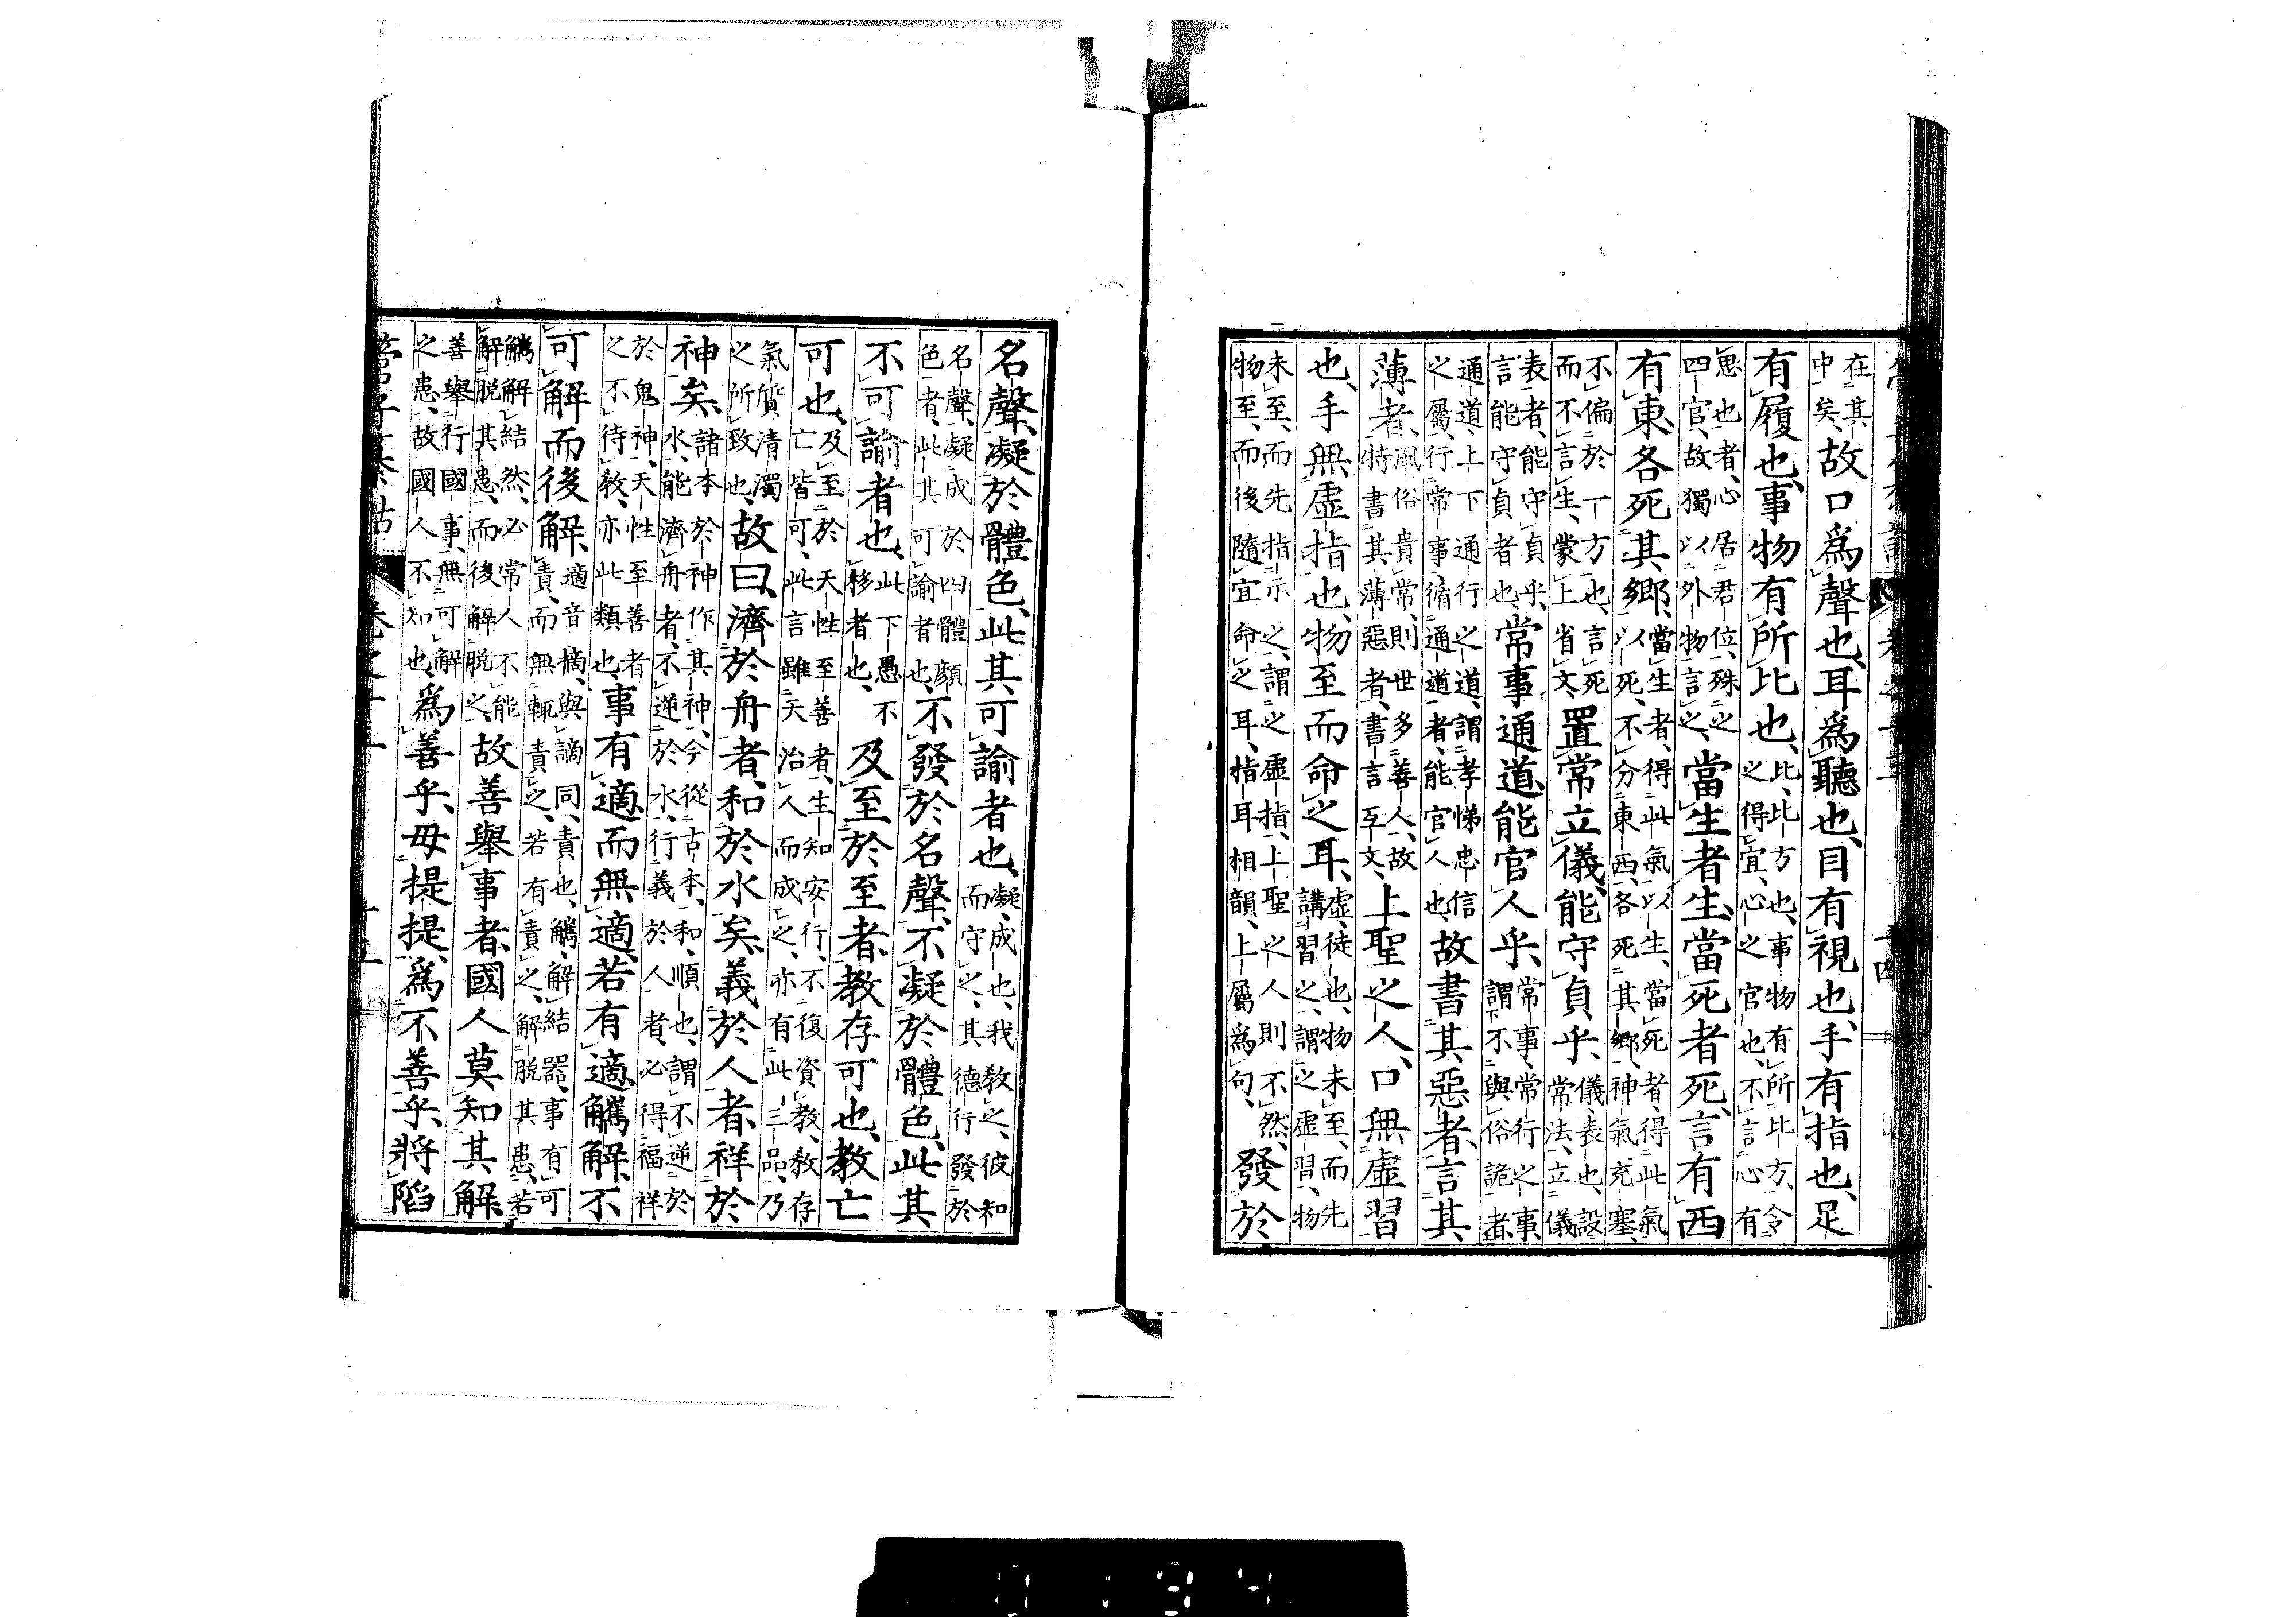 在其中矣、故口爲聲也、耳爲聽也、目有視也、手有指也、足
有履也、事物有所比也、比、比方也、事物有所比方、令之得宜、心之官也、不言心有
思也者、心居君位、殊之四官、故獨以外物言之、當生者生、當死者死、言有西
有東、各死其鄉、當生者、得此氣以生、當死者、得此氣以死、不分東西、各死其鄉、神氣充塞、
不偏於一方也、言死而不言生、蒙上省文、置常立儀、能守貞乎、儀、表也、設常法、立儀
表者、能守貞乎、言能守貞者也、常事通道、能官人乎、常事、常行之事、謂不與俗詭者、
通道、上下通行之道、謂孝悌忠信之屬、行常事、循通道者、能官人也、故書其惡者、言其
薄者、風俗貴常、則世多善人、故特書其薄惡者、書言互文、上聖之人、口無虛習
也、手無虛指也、物至而命之耳、虛、徒也、物未至、而先講習之、謂之虛習、物
未至、而先指示之、謂之虛指、上聖之人則不然、物至、而後隨宜命之耳、指耳相韻、上屬爲句、發於
名聲、凝於體色、此其可諭者也、凝、成也、我敎之、彼知而守之、其德行發於
名聲、凝成於四體顏色者、此其可諭者也、不發於名聲、不凝於體色、此其
不可諭者也、此下愚不移者也、及至於至者、敎存可也、敎亡
可也、及至於天性至善者、生知安行、不復資敎、敎存亡皆可、此言雖天治人而成之、亦有此三品、乃
氣質清濁之所致也、故曰、濟於舟者、和於水矣、義於人者、祥於
神矣、諸本於神作其神、今從古本、和、順也、謂不逆於水、能濟舟者、不逆於水、行義於人者、必得福祥
於鬼神、天性至善者之不待敎、亦此類也、事有適、而無適、若有適、觿解、不
可解而後解、適音摘、與謫同、責也、觿、解結器、事有可責、而無輒責之、若有責之、解脫其患、若
觿解結然、必常人不能解脫其患、而後解脫之、故善舉事者、國人莫知其解
善舉行國事、無可解之患、故國人不知也、爲善乎、毋提提、爲不善乎、將陷